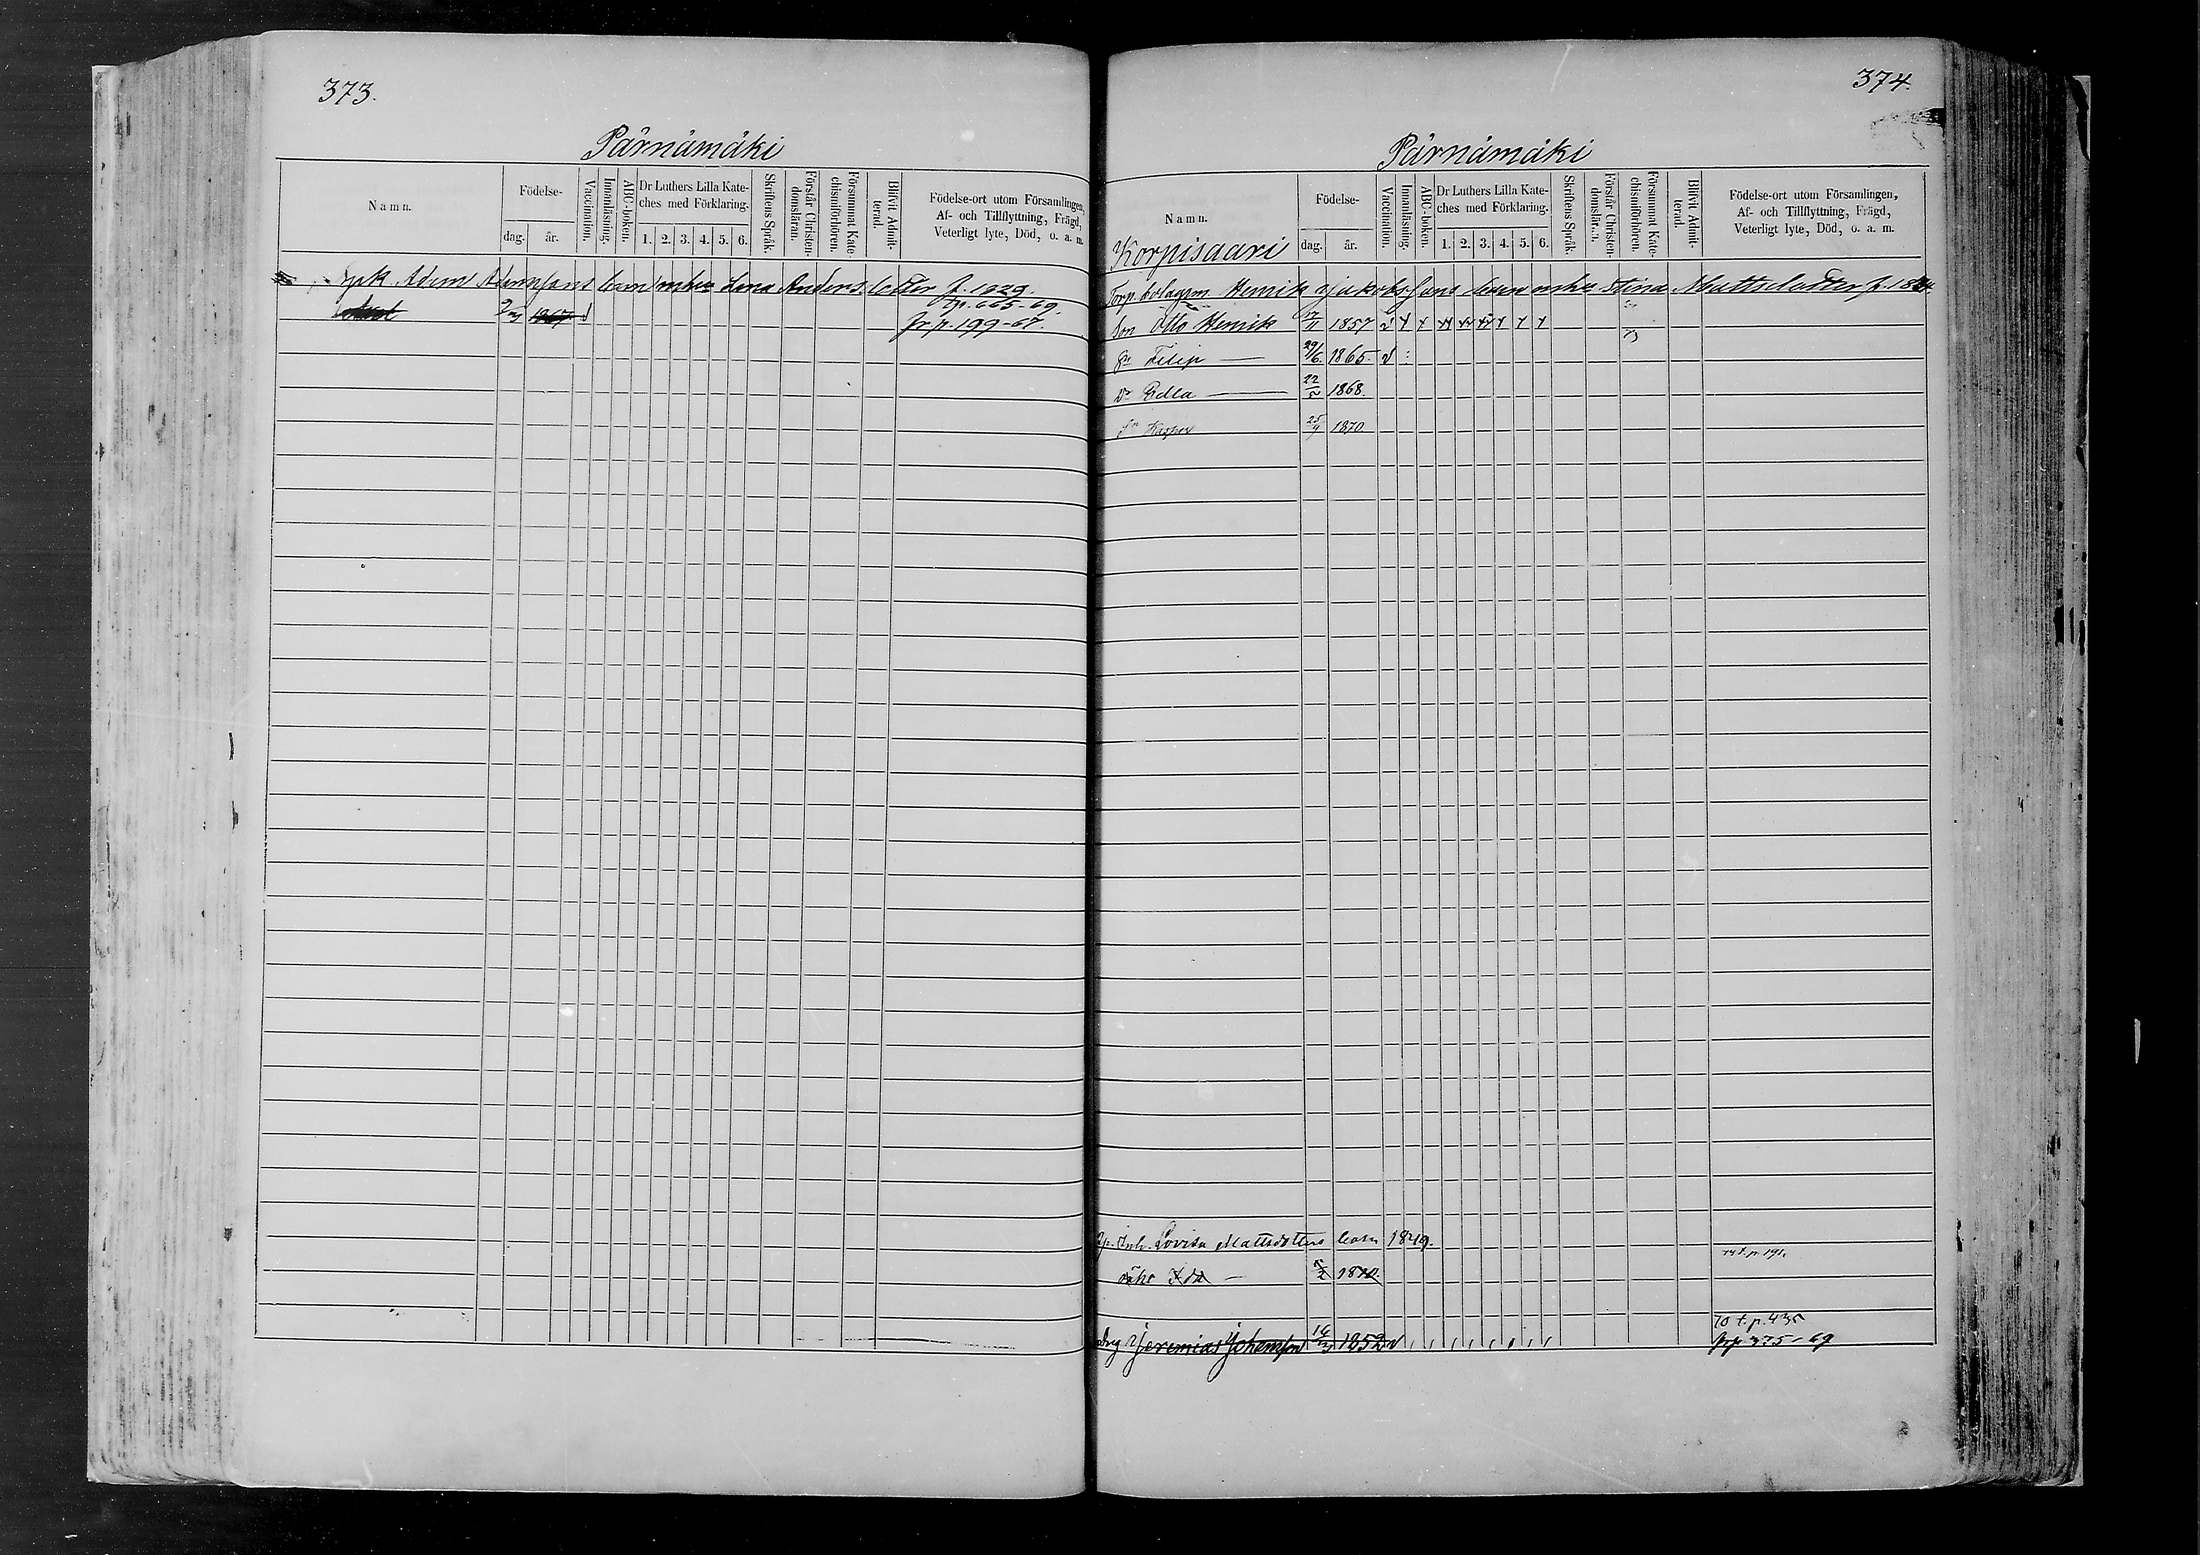 373.
Pärnämäki
Namn.
Födelse-
dag.
år.
Vaccination.
Innanläsning.
ABC-boken.
Dr Luthers Lilla Kate-
ches med Förklaring.
1. 2. 3. 4. 5. 6.
Skriftens Språk.
Förstår Christen-
domsläran.
Försummat Kate-
chismiförhören.
Blifvit Admit-
terad.
Födelse-ort utom Församlingen,
Af- och Tillflyttning, Frägd,
Veterligt lyte, Död, o. a. m.
Adam Adamssons barn m hu Lena Anders dotter f. 1829.
1867
t p. 665-69.
fr p. 199-67.
374.
Pärnämäki
Namn.
Korpisaari
Födelse-
dag.
år.
Vaccination.
Innanläsning.
ABC-boken.
Dr Luthers Lilla Kate-
ches med Förklaring.
1. 2. 3. 4. 5. 6.
Skriftens Språk.
Förstår Christen-
domslära.
Försummat Kate-
chismiförhören.
Blifvit Admit-
terad.
Födelse-ort utom Församlingen,
Af- och Tillflyttning, Frägd,
Veterligt lyte, Död, o. a. m.
Torp. bolagsm Henrik Jakobssons barn m hu Stina Mattsdotter f.
Son Otto Henrik 17/11 1857
Sn Filip — 29/6 1865.
Dr Edla — 22/5 1868.
Sn Kasper 1870
Inh. Lovisa Mattsdotters barn 1849.
t. p. 191.
Ida — 1870.
70 t. p. 435
Drg Jeremias Johansson 1852
fr p 375-69